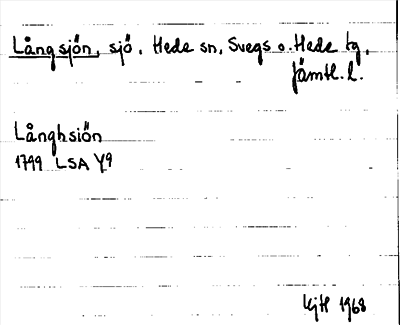 Långsjön, sjö. Hede sn, Svegs o. Hede tg,
Jämtl. l.
Långhsiön
1799 LSA Y9
KjH 1968